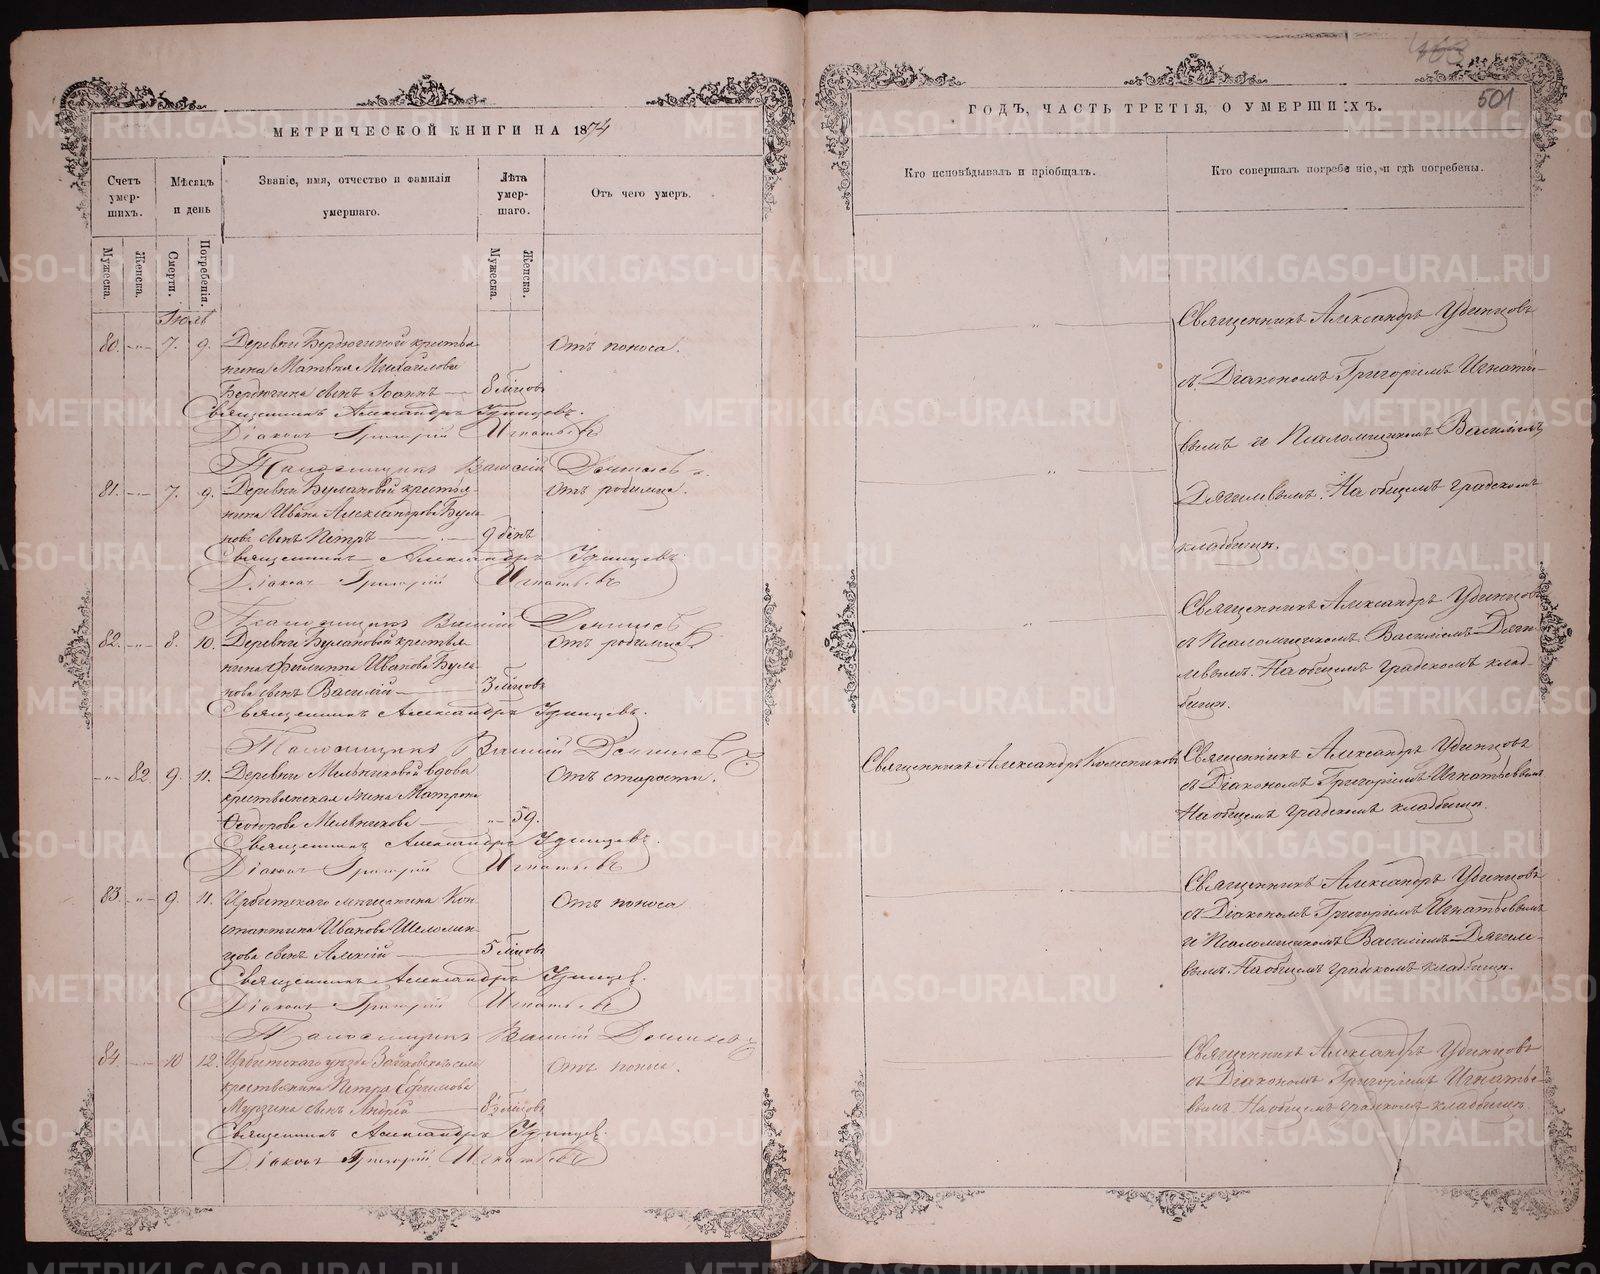 МЕТРИЧЕСКОЙ КНИГИ НА 1874
Счетъ умер-шихъ.
Мѣсяцъ и день
Званіе, имя, отчество и фамилія умершаго.
Лѣта умер-шаго.
Отъ чего умеръ.
Мужеска.
Женска.
Смерти.
Погребенія.
Мужеска.
Женска.
Іюль
80. -"- 7. 9. Деревни Бердюгиной крестья- Отъ поноса.
нина Матвѣя Михайлова
Бердюгина сынъ Іоаннъ — 8 мѣсцовъ
Священникъ Александръ Удинцевъ.
Діаконъ Григорій Игнатьевъ
Псаломщикъ Василій
81. -"- 7. 9. Деревни Булановой крестья- Отъ родимца.
нина Ивана Александрова Була-
нова сынъ Петръ — 9 день
Священникъ Александръ Удинцевъ.
Діаконъ Григорій Игнатьевъ
Псаломщикъ Василій
82. -"- 8. 10. Деревни Булановой крестья- Отъ родимца.
нина Филиппа Иванова Була-
нова сынъ Василій — 3 мѣсцовъ
Священникъ Александръ Удинцевъ.
Псаломщикъ Василій
-"- 82 9. 11. Деревни Мельниковой вдова Отъ старости.
крестьянская жена Матрона
Ѳеодорова Мельникова — "- 59.
Священникъ Александръ Удинцевъ.
Діаконъ Григорій Игнатьевъ
83. -"- 9. 11. Ирбитскаго мѣщанина Кон- Отъ поноса
стантина Иванова Шеломен-
цова сынъ Алексій — 5 мѣсцовъ
Священникъ Александръ Удинцев.
Діаконъ Григорій Игнатьевъ
Псаломщикъ Василій
84. -"- 10 12. Ирбитскаго уѣзда села Отъ поноса.
крестьянина Петра Ефимова
Мурзина сынъ Андрей — мѣсцовъ
Священникъ Александръ Удинцев
Діаконъ Григорій Игнатьевъ
501
ГОДЪ, ЧАСТЬ ТРЕТІЯ, О УМЕРШИХЪ.
Кто исповѣдывалъ и пріобщалъ.
Кто совершалъ погребеніе, и гдѣ погребены.
Священникъ Александръ Удинцовъ
съ Діакономъ Григоріемъ Игнатье-
вымъ и Псаломщикомъ Василіемъ
Дягилевымъ. На общемъ градскомъ
кладбищѣ.
Священникъ Александръ Удинцовъ
съ Псаломщикомъ Василіемъ Дяги-
левымъ. На общемъ градскомъ клад-
бищѣ.
Священникъ Александръ
Священникъ Александръ Удинцовъ
съ Діакономъ Григоріемъ Игнатьевымъ
На общемъ градскомъ кладбищѣ.
Священникъ Александръ Удинцовъ
съ Діакономъ Григоріемъ Игнатьевымъ
и Псаломщикомъ Василіемъ Дягиле-
вымъ. На общемъ градскомъ кладбищѣ.
Священникъ Александръ Удинцовъ
съ Діакономъ Григоріемъ Игнатье-
вымъ. На общемъ градскомъ кладбищѣ.
METRIKI.GASO-URAL.RU